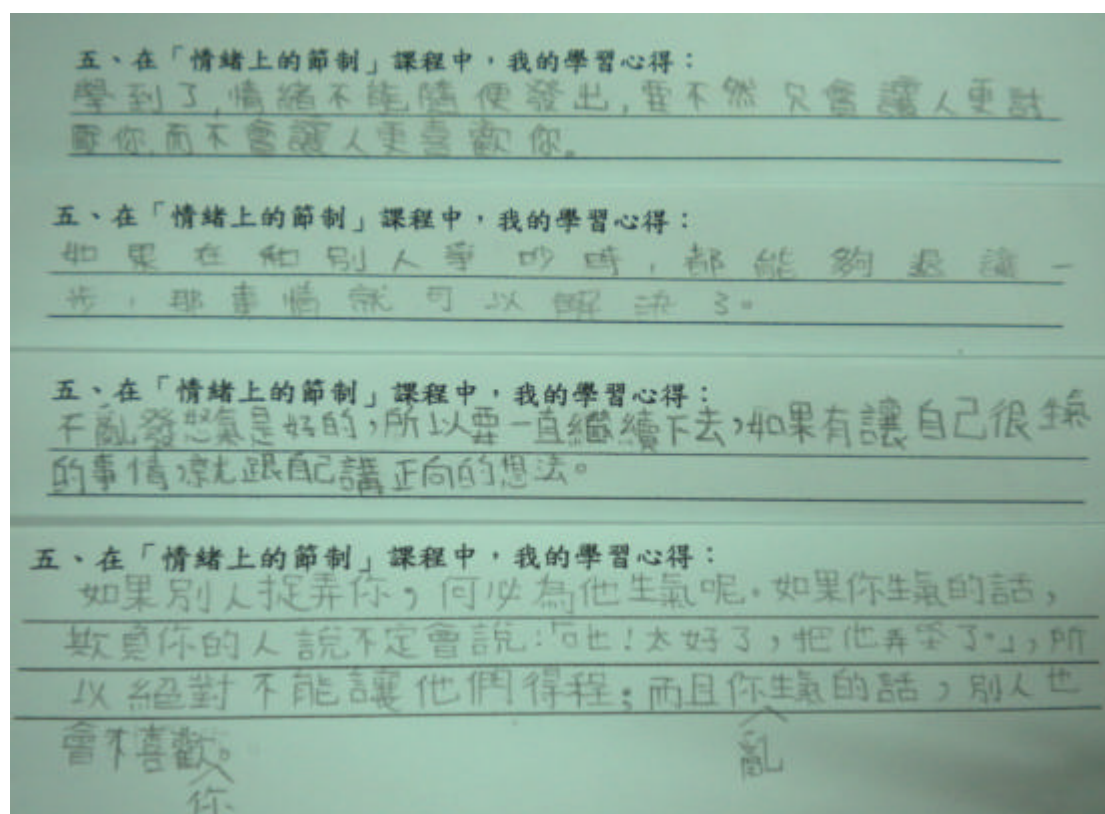 五、在「情緒上的節制」課程中，我的學習心得：
學到了,情緒不能隨便發出,要不然只會讓人更討
厭你,而不會讓人更喜歡你。
五、在「情緒上的節制」課程中，我的學習心得：
如果在和別人爭吵時，都能夠退讓一
步，那事情就可以解決了。
五、在「情緒上的節制」課程中，我的學習心得：
不亂發怒氣是好的，所以要一直繼續下去，如果有讓自己很生氣
的事情，就跟自己講正向的想法。
五、在「情緒上的節制」課程中，我的學習心得：
如果別人捉弄你，何必為他生氣呢。如果你生氣的話，
欺負你的人說不定會說：「吔！太好了，把他弄哭了。」，所
以絕對不能讓他們得程；而且你亂生氣的話，別人也
會不喜歡你。